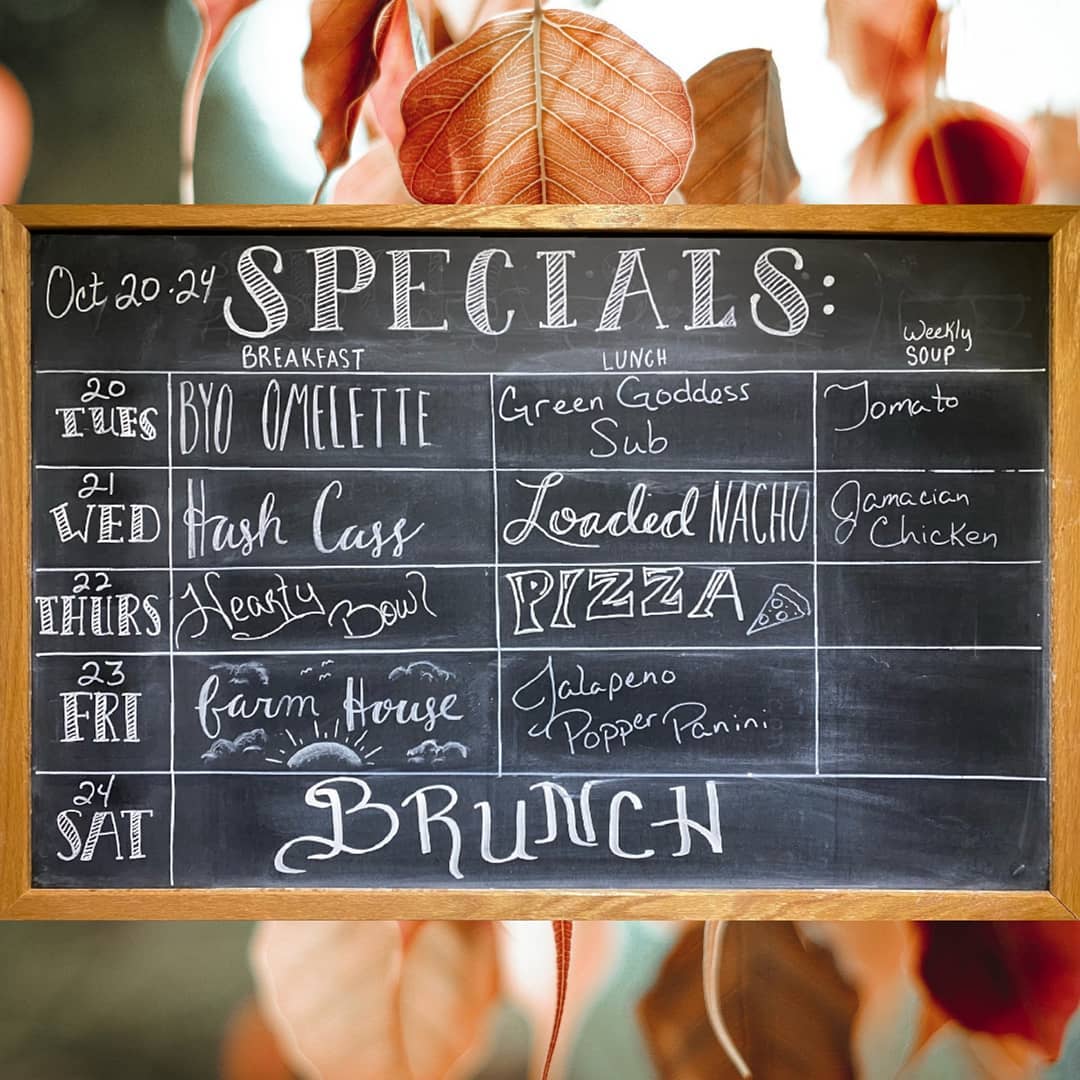 Oct 20-24 SPECIALS:
BREAKFAST LUNCH Weekly SOUP
20 TUES
BYO OMELETTE
Green Goddess
Sub
Tomato
21 WED
Hash Cass
Loaded NACHO
Jamacian
Chicken
22 THURS
Hearty Bowl
PIZZA
23 FRI
farm House
Jalapeno
Popper Panini
24 SAT
BRUNCH